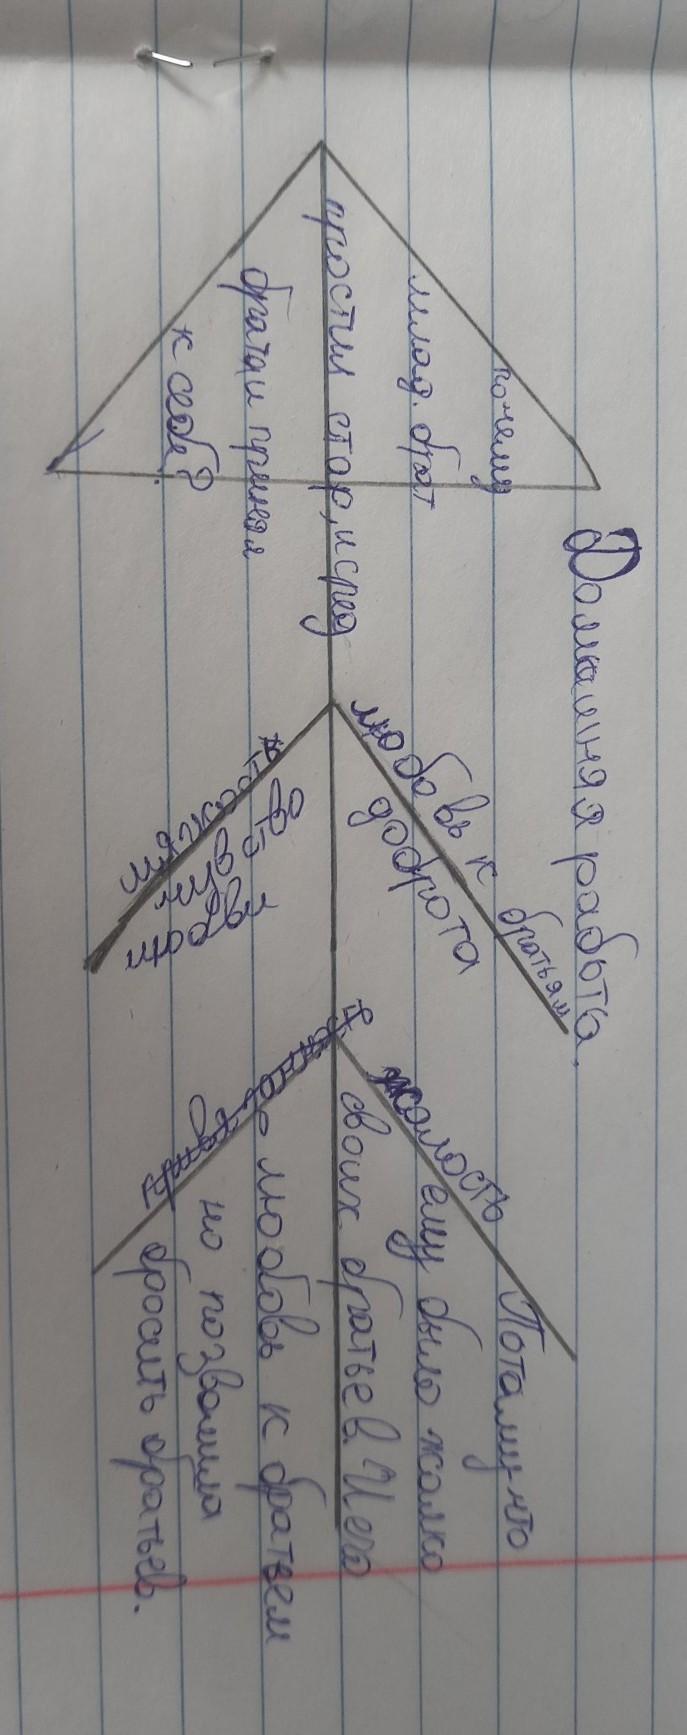 Домашняя работа.
почему
млад. брат
простил стар, и сред
братаи принял
к себе?
любовь к братьям
доброта
жалость
Потамучто
ему было жалко
своих братьев. И его
любовь к братьем
но позволила
бросить братьев.